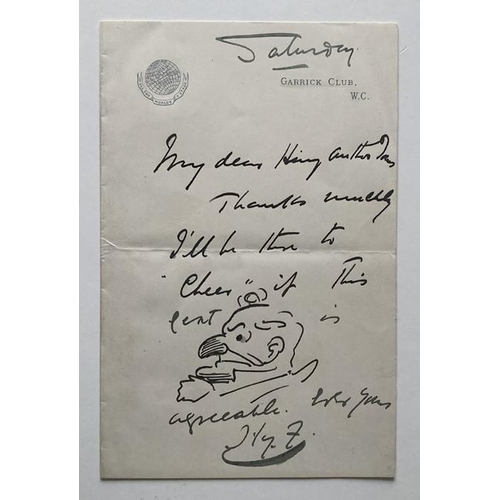 Saturday
GARRICK CLUB,
W.C.
My dear
Thanks muchly
I'll be there to
"Cheer" if this
gent is
agreeable. Ever Yours